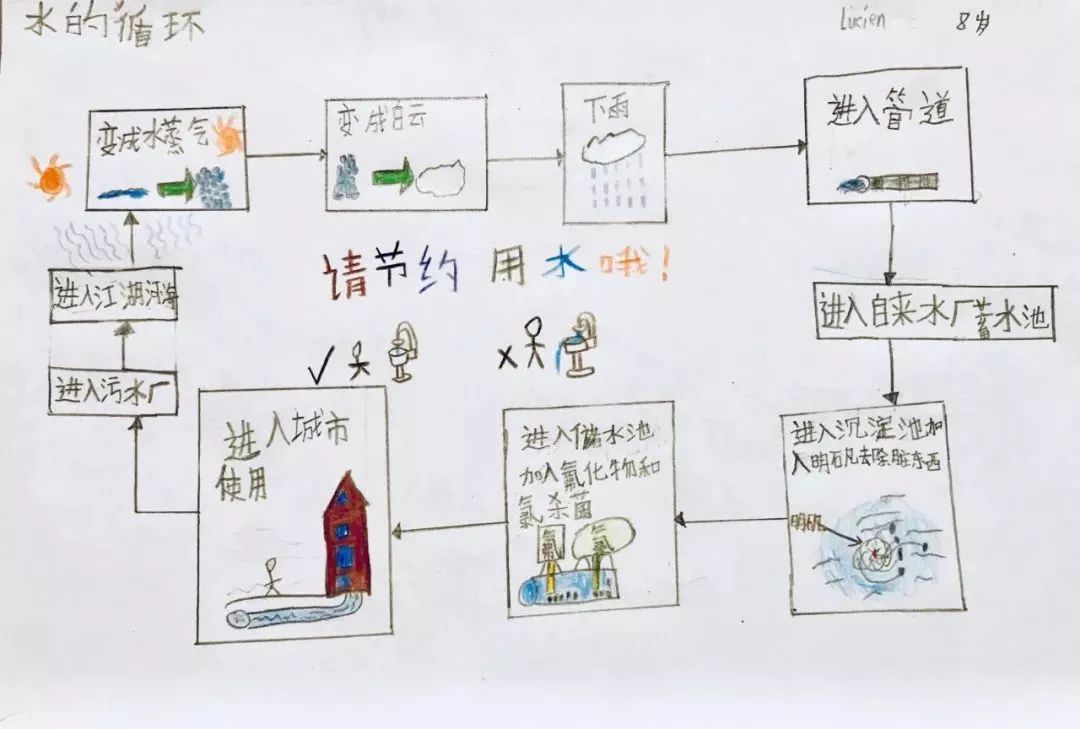 水的循环
Lucien 8岁
变成水蒸气
变成白云
下雨
进入管道
进入自来水厂蓄水池
进入沉淀池加
入明矾去除脏东西
明矾
进入儲水池
加入氟化物和
氯杀菌
氟
氯
进入城市
使用
进入污水厂
进入江湖河海
请节约用水哦！